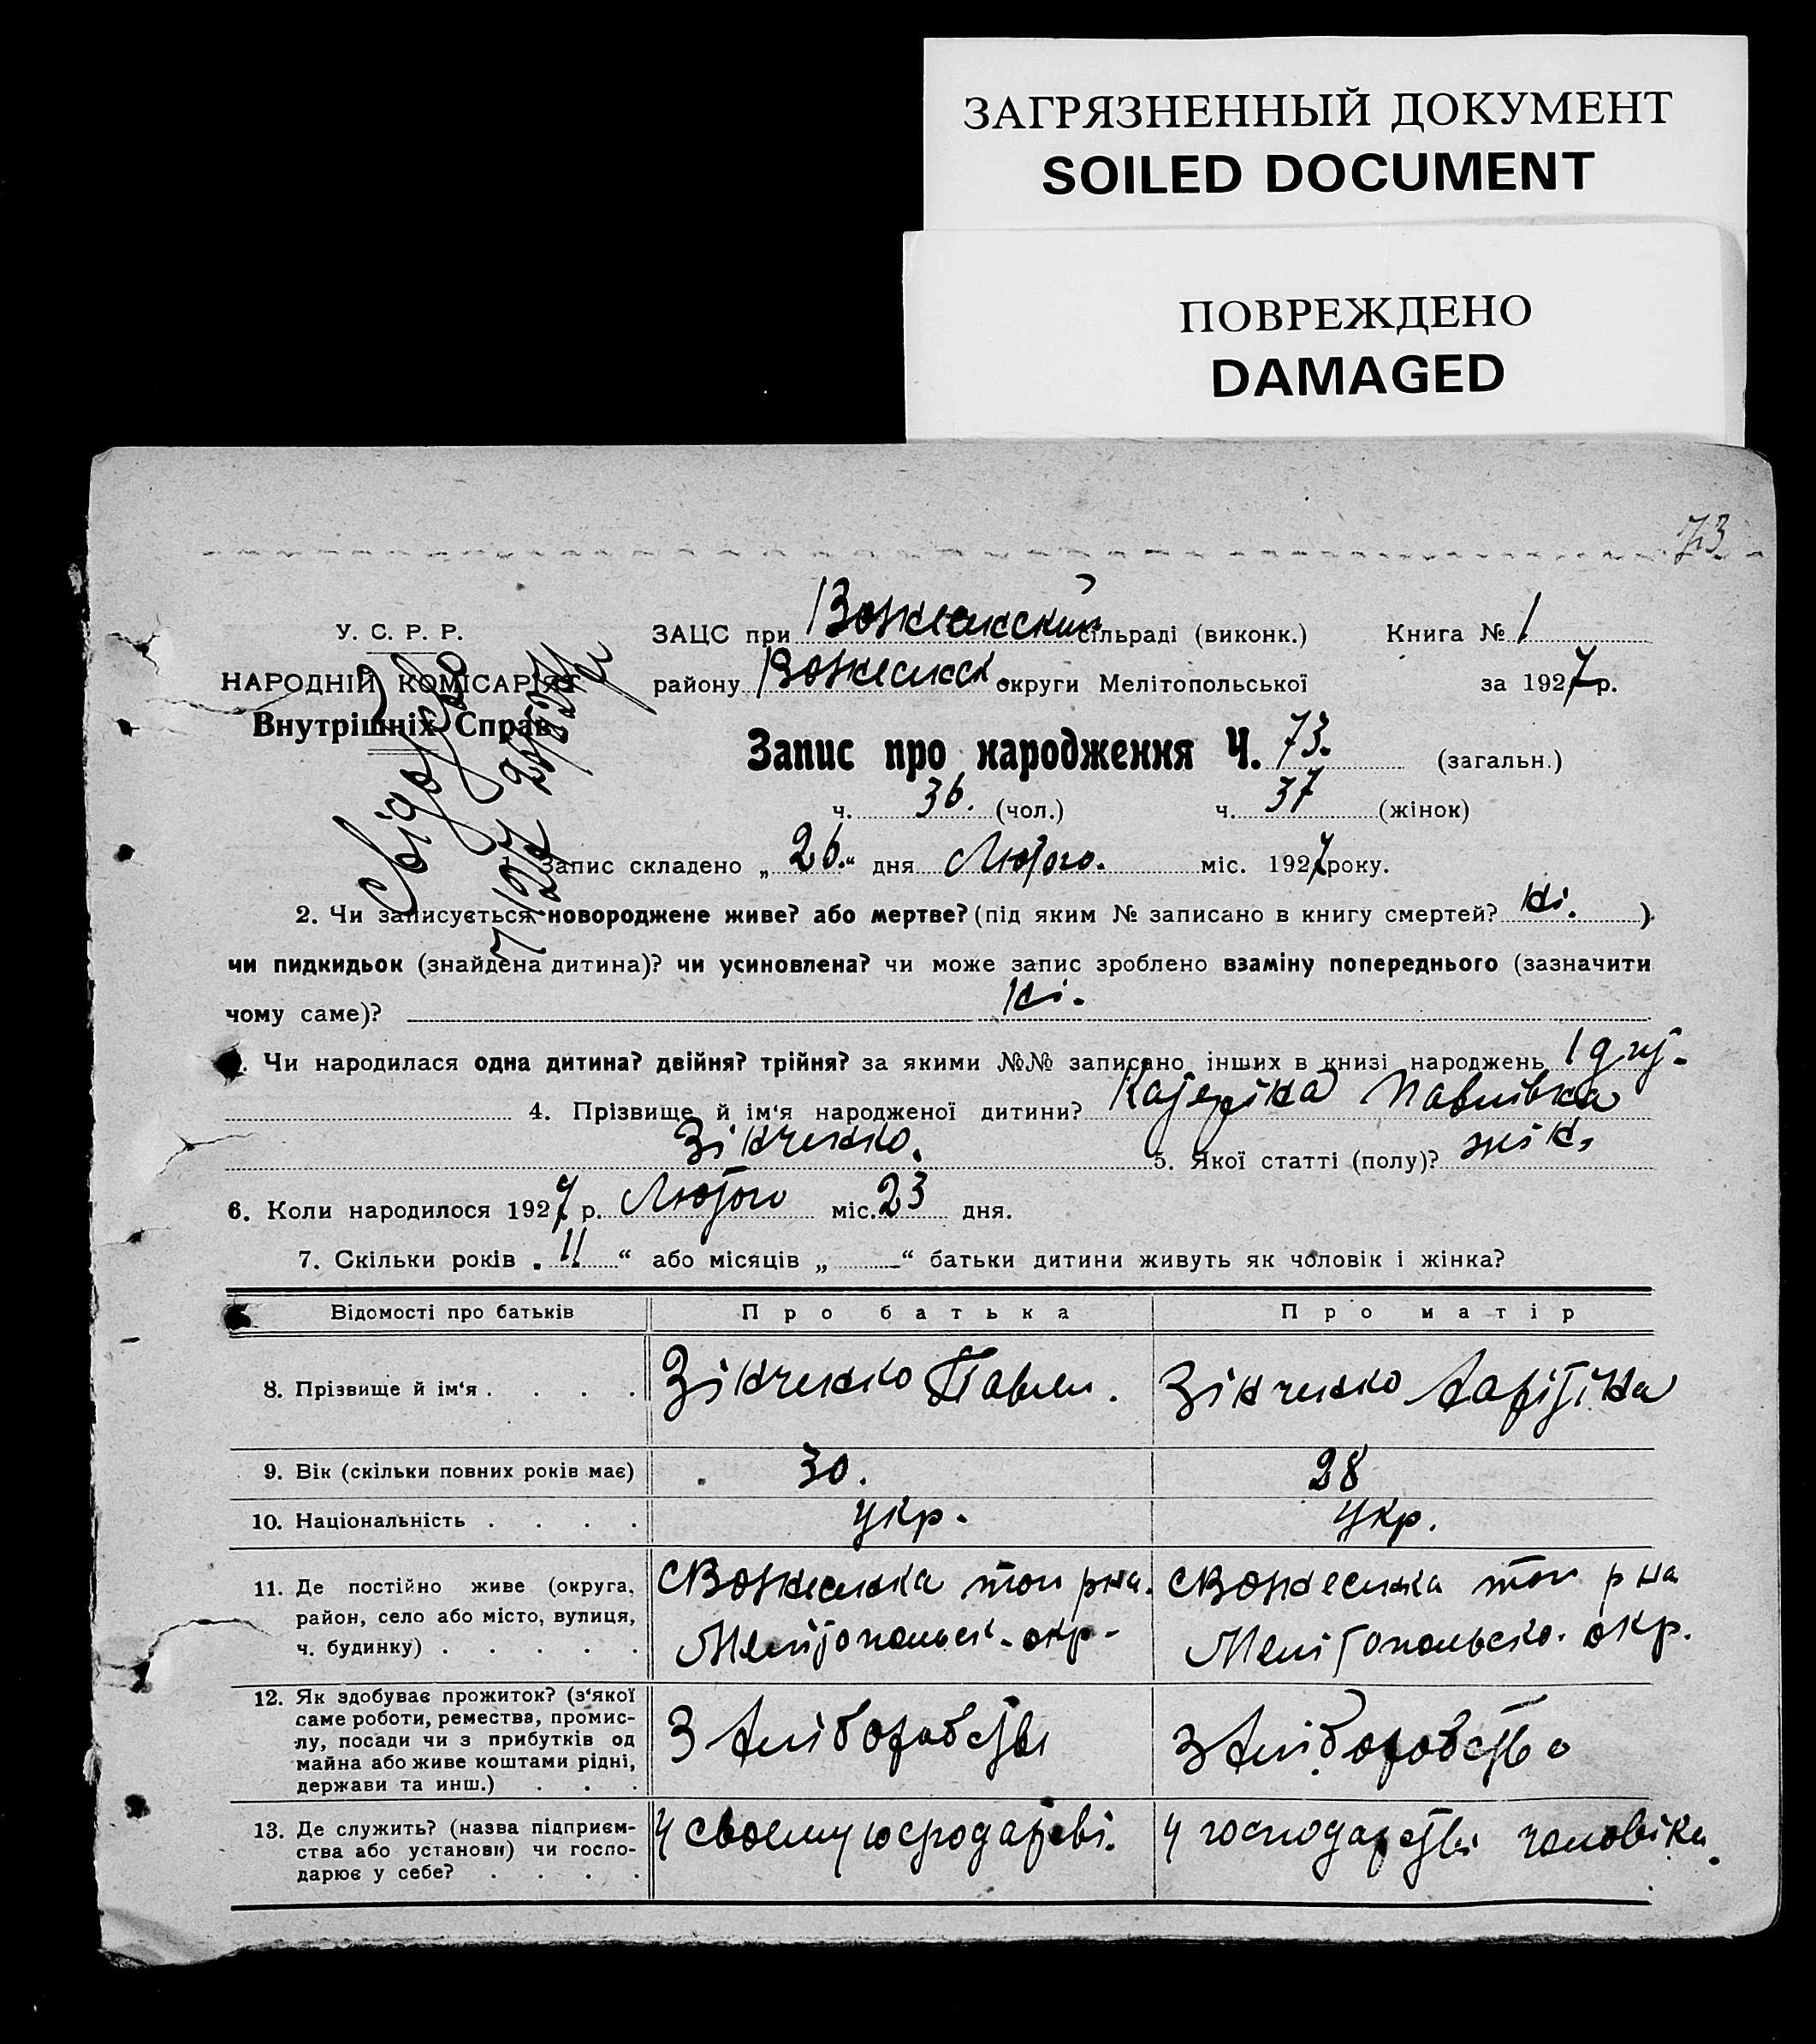 ЗАГРЯЗНЕННЫЙ ДОКУМЕНТ
SOILED DOCUMENT
ПОВРЕЖДЕНО
DAMAGED
73
У. С. Р. Р.
НАРОДНІЙ КОМІСАРІЯТ
Внутрішніх Справ
ЗАЦС при сільраді (виконк.) Книга № 1
району округи Мелітопольської за 1927 р.
Запис про народження Ч. 73. (загальн.)
ч. 36. (чол.) ч. 37 (жінок)
Запис складено „26.“ дня Лютого. міс. 1927 року.
2. Чи записується новороджене живе? або мертве? (під яким № записано в книгу смертей? Ні. )
чи пидкидьок (знайдена дитина)? чи усиновлена? чи може запис зроблено взаміну попереднього (зазначити
чому саме)? Ні.
. Чи народилася одна дитина? двійня? трійня? за якими №№ записано інших в книзі народжень 1
4. Прізвище й ім‘я народженої дитини? Катеріна Павлівна
Зінченко. 5. Якої статті (полу)? жін.
6. Коли народилося 1927 р. Лютого міс. 23 дня.
7. Скільки років „ 11 “ або місяців „ “ батьки дитини живуть як чоловік і жінка?
Відомості про батьків Про батька Про матір
8. Прізвище й ім‘я . . . . Зінченко Павло. Зінченко
9. Вік (скільки повних років має) 30. 28
10. Національність . . . . укр. укр.
11. Де постійно живе (округа,
район, село або місто, вулиця,
ч. будинку) . . . . . Мелітопольськ. окр. Мелітопольсько. окр.
12. Як здобуває прожиток? (з‘якої
саме роботи, ремества, промис-
лу, посади чи з прибутків од
майна або живе коштами рідні,
держави та инш.) . . . З хліборобства З хліборобства
13. Де служить? (назва підприєм-
ства або установи) чи госпо-
дарює у себе? . . . . У своему У господарстві чоловіка.